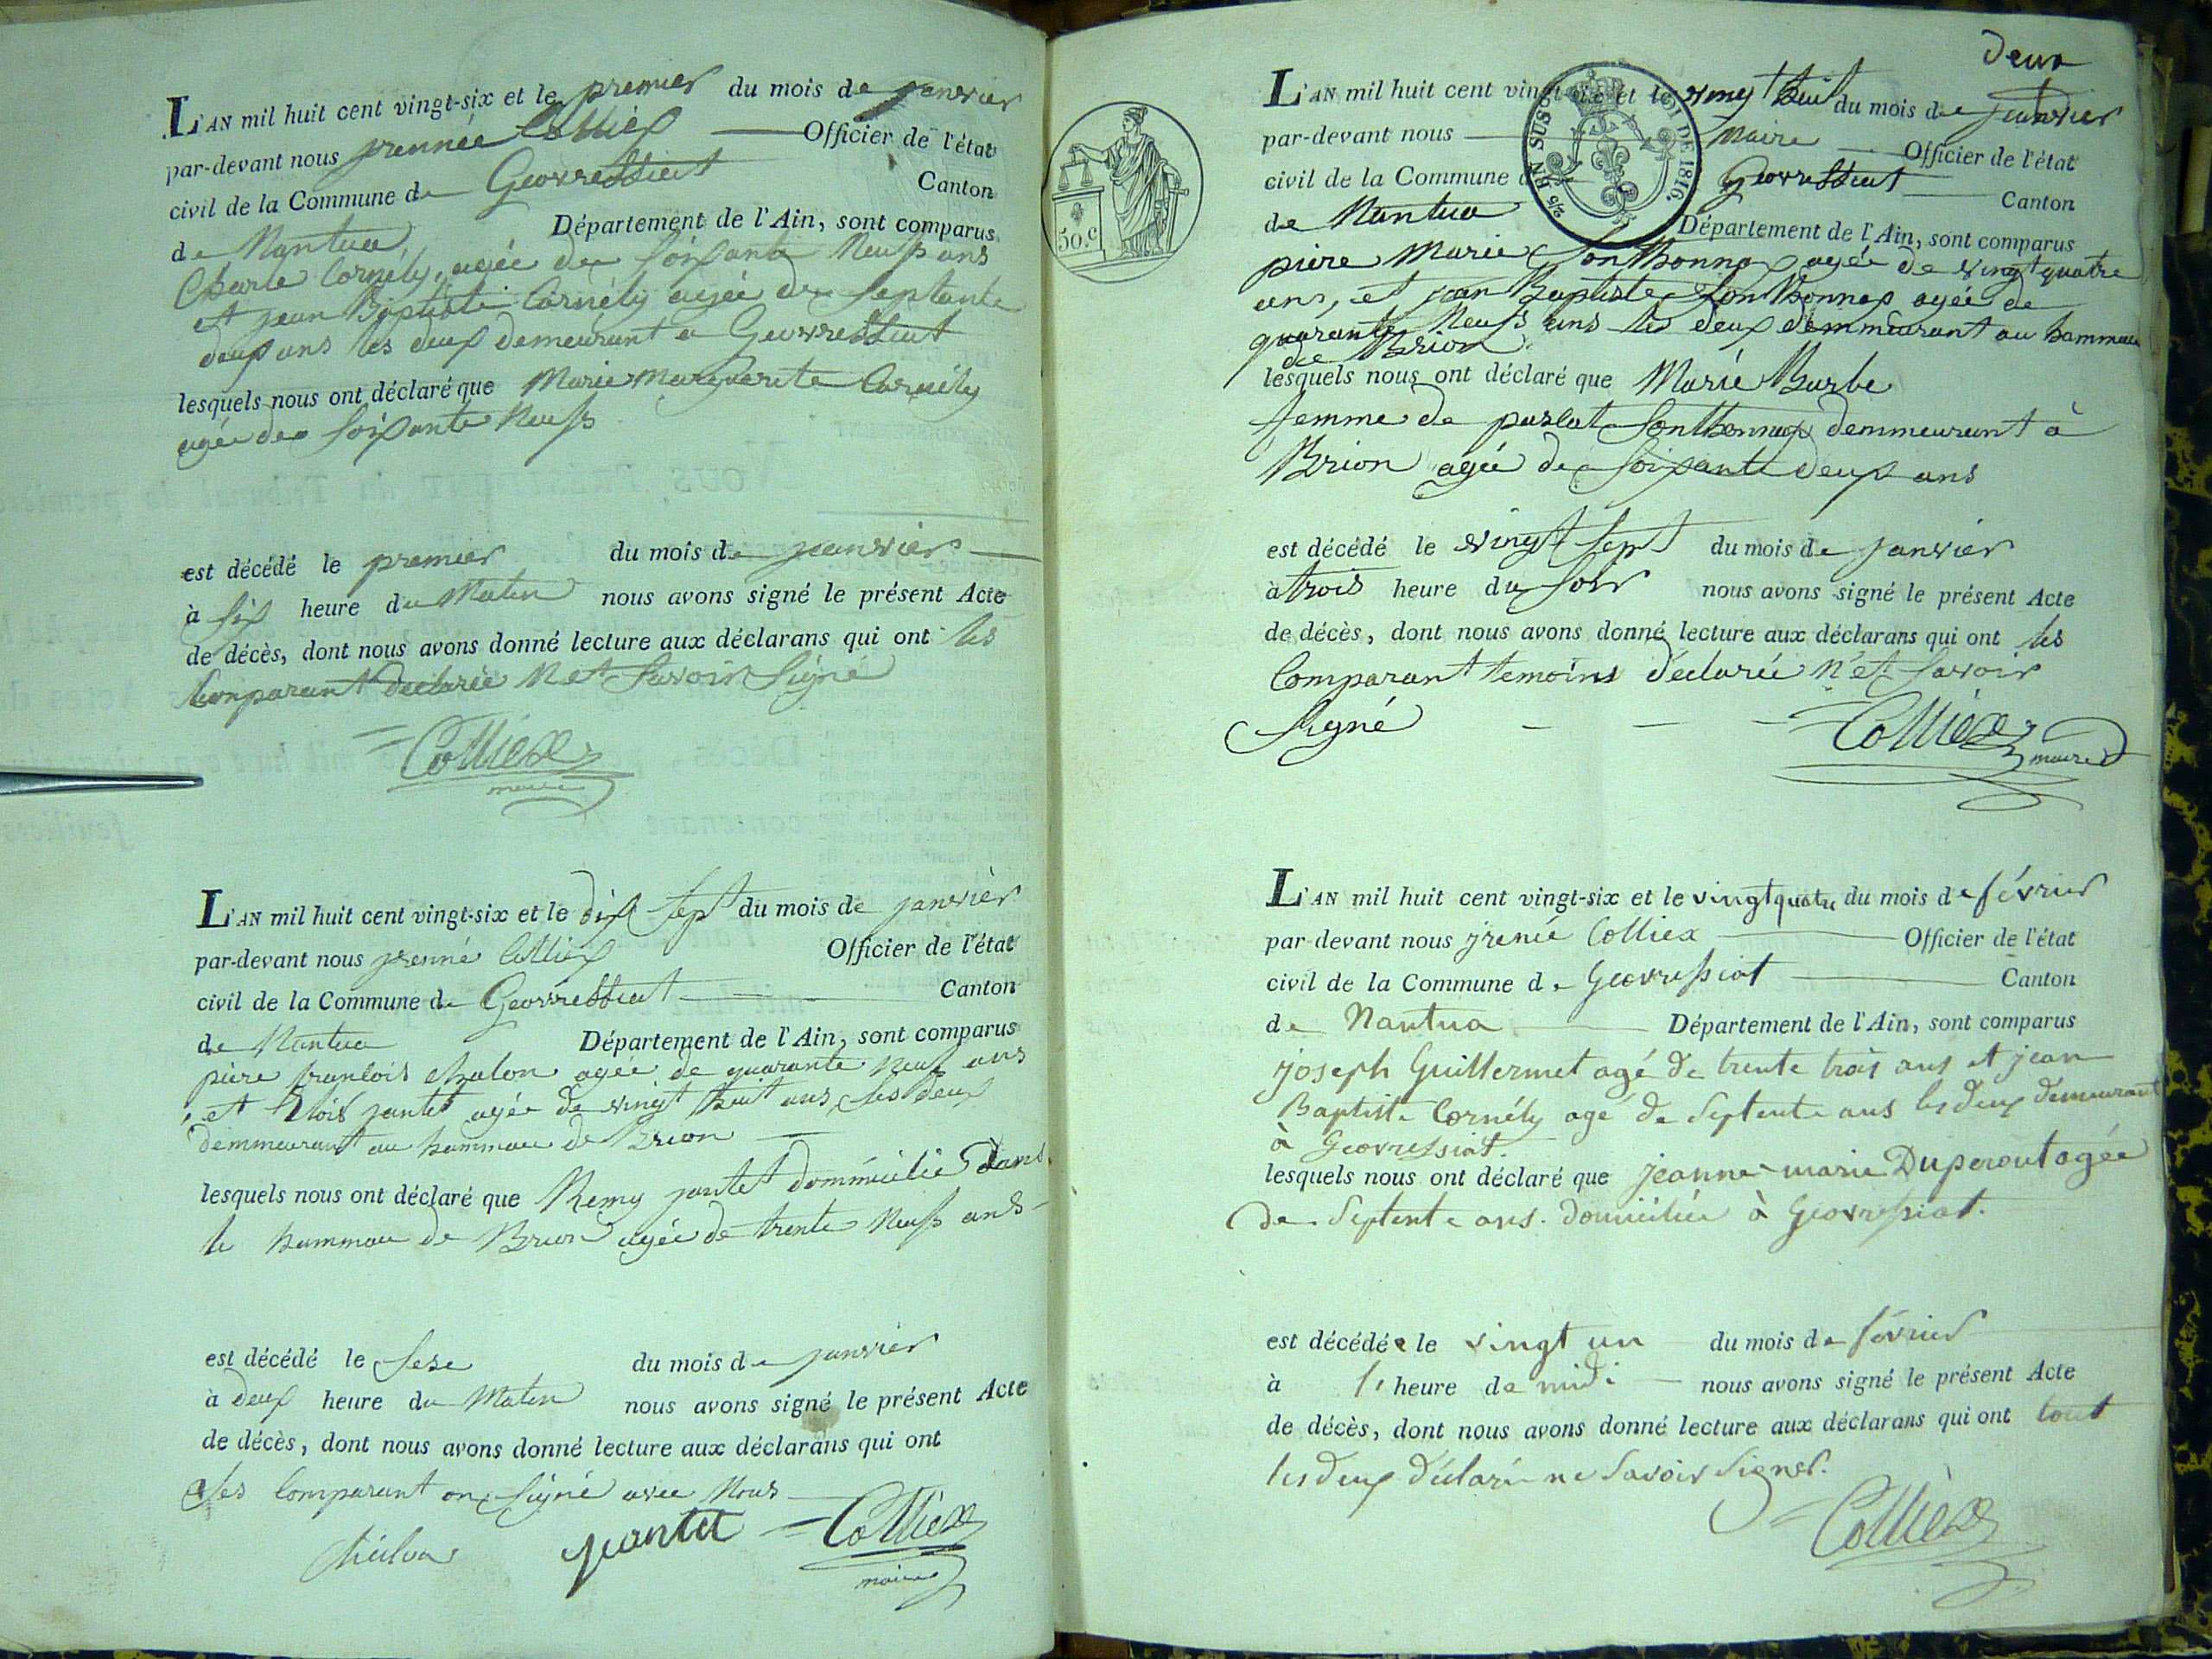 L'AN mil huit cent vingt-six et le premier du mois de janvier
par-devant nous jrennée Colliex Officier de l'état
civil de la Commune de Geovressiat Canton
de Nantua Département de l'Ain, sont comparus
Charle Cornély, agée de soixante neuf ans
et jean Baptiste Cornély agée de septante
deux ans les deux demeurant a Geovressiat
lesquels nous ont déclaré que Marie Marguerite Cornély
agée de soixante neufs
est décédé le premier du mois de jeanvier
à six heure du Matin nous avons signé le présent Acte
de décès, dont nous avons donné lecture aux déclarans qui ont les
Comparant declarée net savoir signé
Colliex
maire
L'AN mil huit cent vingt-six et le dix sept du mois de janvièr
par-devant nous jrenné Colliex Officier de l'état
civil de la Commune de Geovressiat Canton
de Nantua Département de l'Ain, sont comparus
piere franlois chalon agée de quarante neuf ans
et Elois jantet agée de vingt huit ans, les deux
demmeurant au hammau de Brion
lesquels nous ont déclaré que Remy jantet dommicilié dans
le hammau de Brion agée de trente neufs ans
est décédé le sese du mois de janvier
à deux heure du Matin nous avons signé le présent Acte
de décès, dont nous avons donné lecture aux déclarans qui ont
les Comparant on signé avec Nous
jeantet Colliex
maire
deux
L'AN mil huit cent vingt-six et le vingt huit du mois de janvier
par-devant nous Maire Officier de l'état
civil de la Commune Geovressiat Canton
de Nantua Département de l'Ain, sont comparus
LOI DE 1816.
EN SUS
50.c
piere Marie Sonthonnax agée de vingt quatre
ans, et jean Baptiste Sonthonnax agée de
quarante neufs ans les deux demmeurant au hammau
de Brion
lesquels nous ont déclaré que Marie Barbe
femme de Sonthonnax demmeurant à
Brion agée de soixante deux ans
est décédé le vingt sept du mois de janvier
à trois heure du soir nous avons signé le présent Acte
de décès, dont nous avons donné lecture aux déclarans qui ont les
Comparant temoins déclarée n'et savoir
signé
Colliex
maire
L'AN mil huit cent vingt-six et le vingt quatre du mois de février
par-devant nous jrenée Colliex Officier de l'état
civil de la Commune de Geovressiat Canton
de Nantua Département de l'Ain, sont comparus
joseph Guillermet agé de trente trois ans et jean
Baptiste Cornély agé de septente ans les deux demeurant
à Geovressiat.
lesquels nous ont déclaré que jeanne-marie Duperout agée
de septente ans. domiciliée à Geovressiat.
est décédée le vingt un du mois de février
à heure de midi nous avons signé le présent Acte
de décès, dont nous avons donné lecture aux déclarans qui ont tout
les deux déclaré ne savoir signer.
Colliex